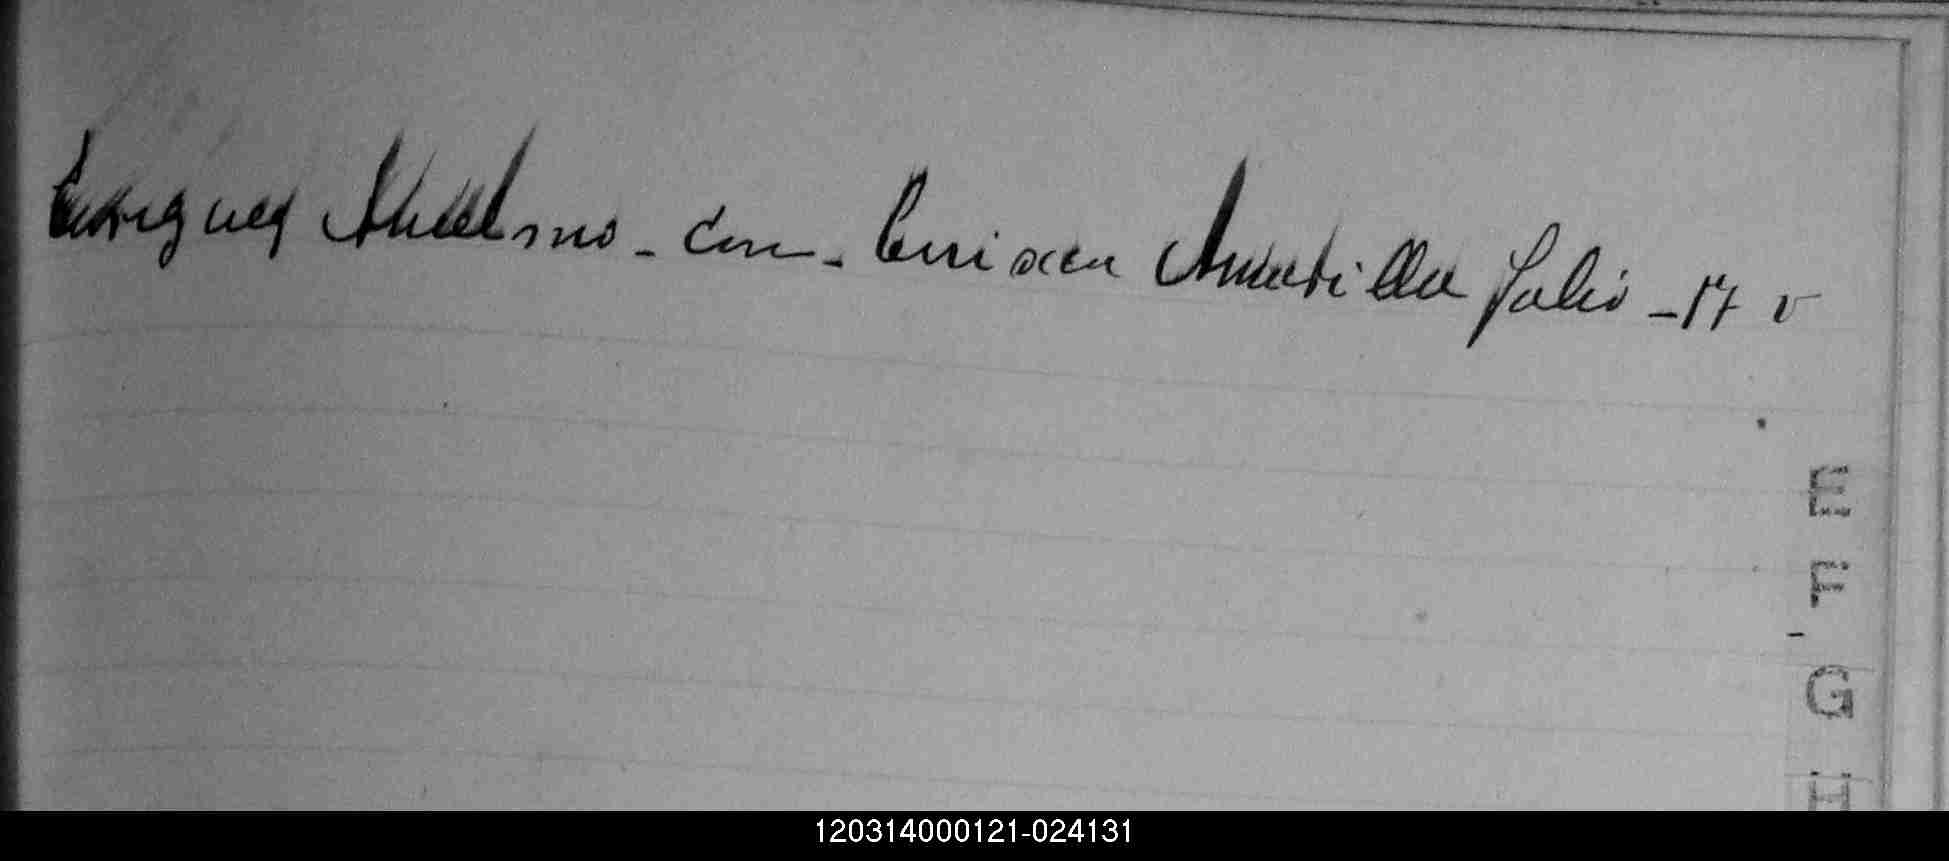 Enriquez Anselmo - con - Luisa Amarilla folio - 17 v
E
F
G
H
120314000121-024131